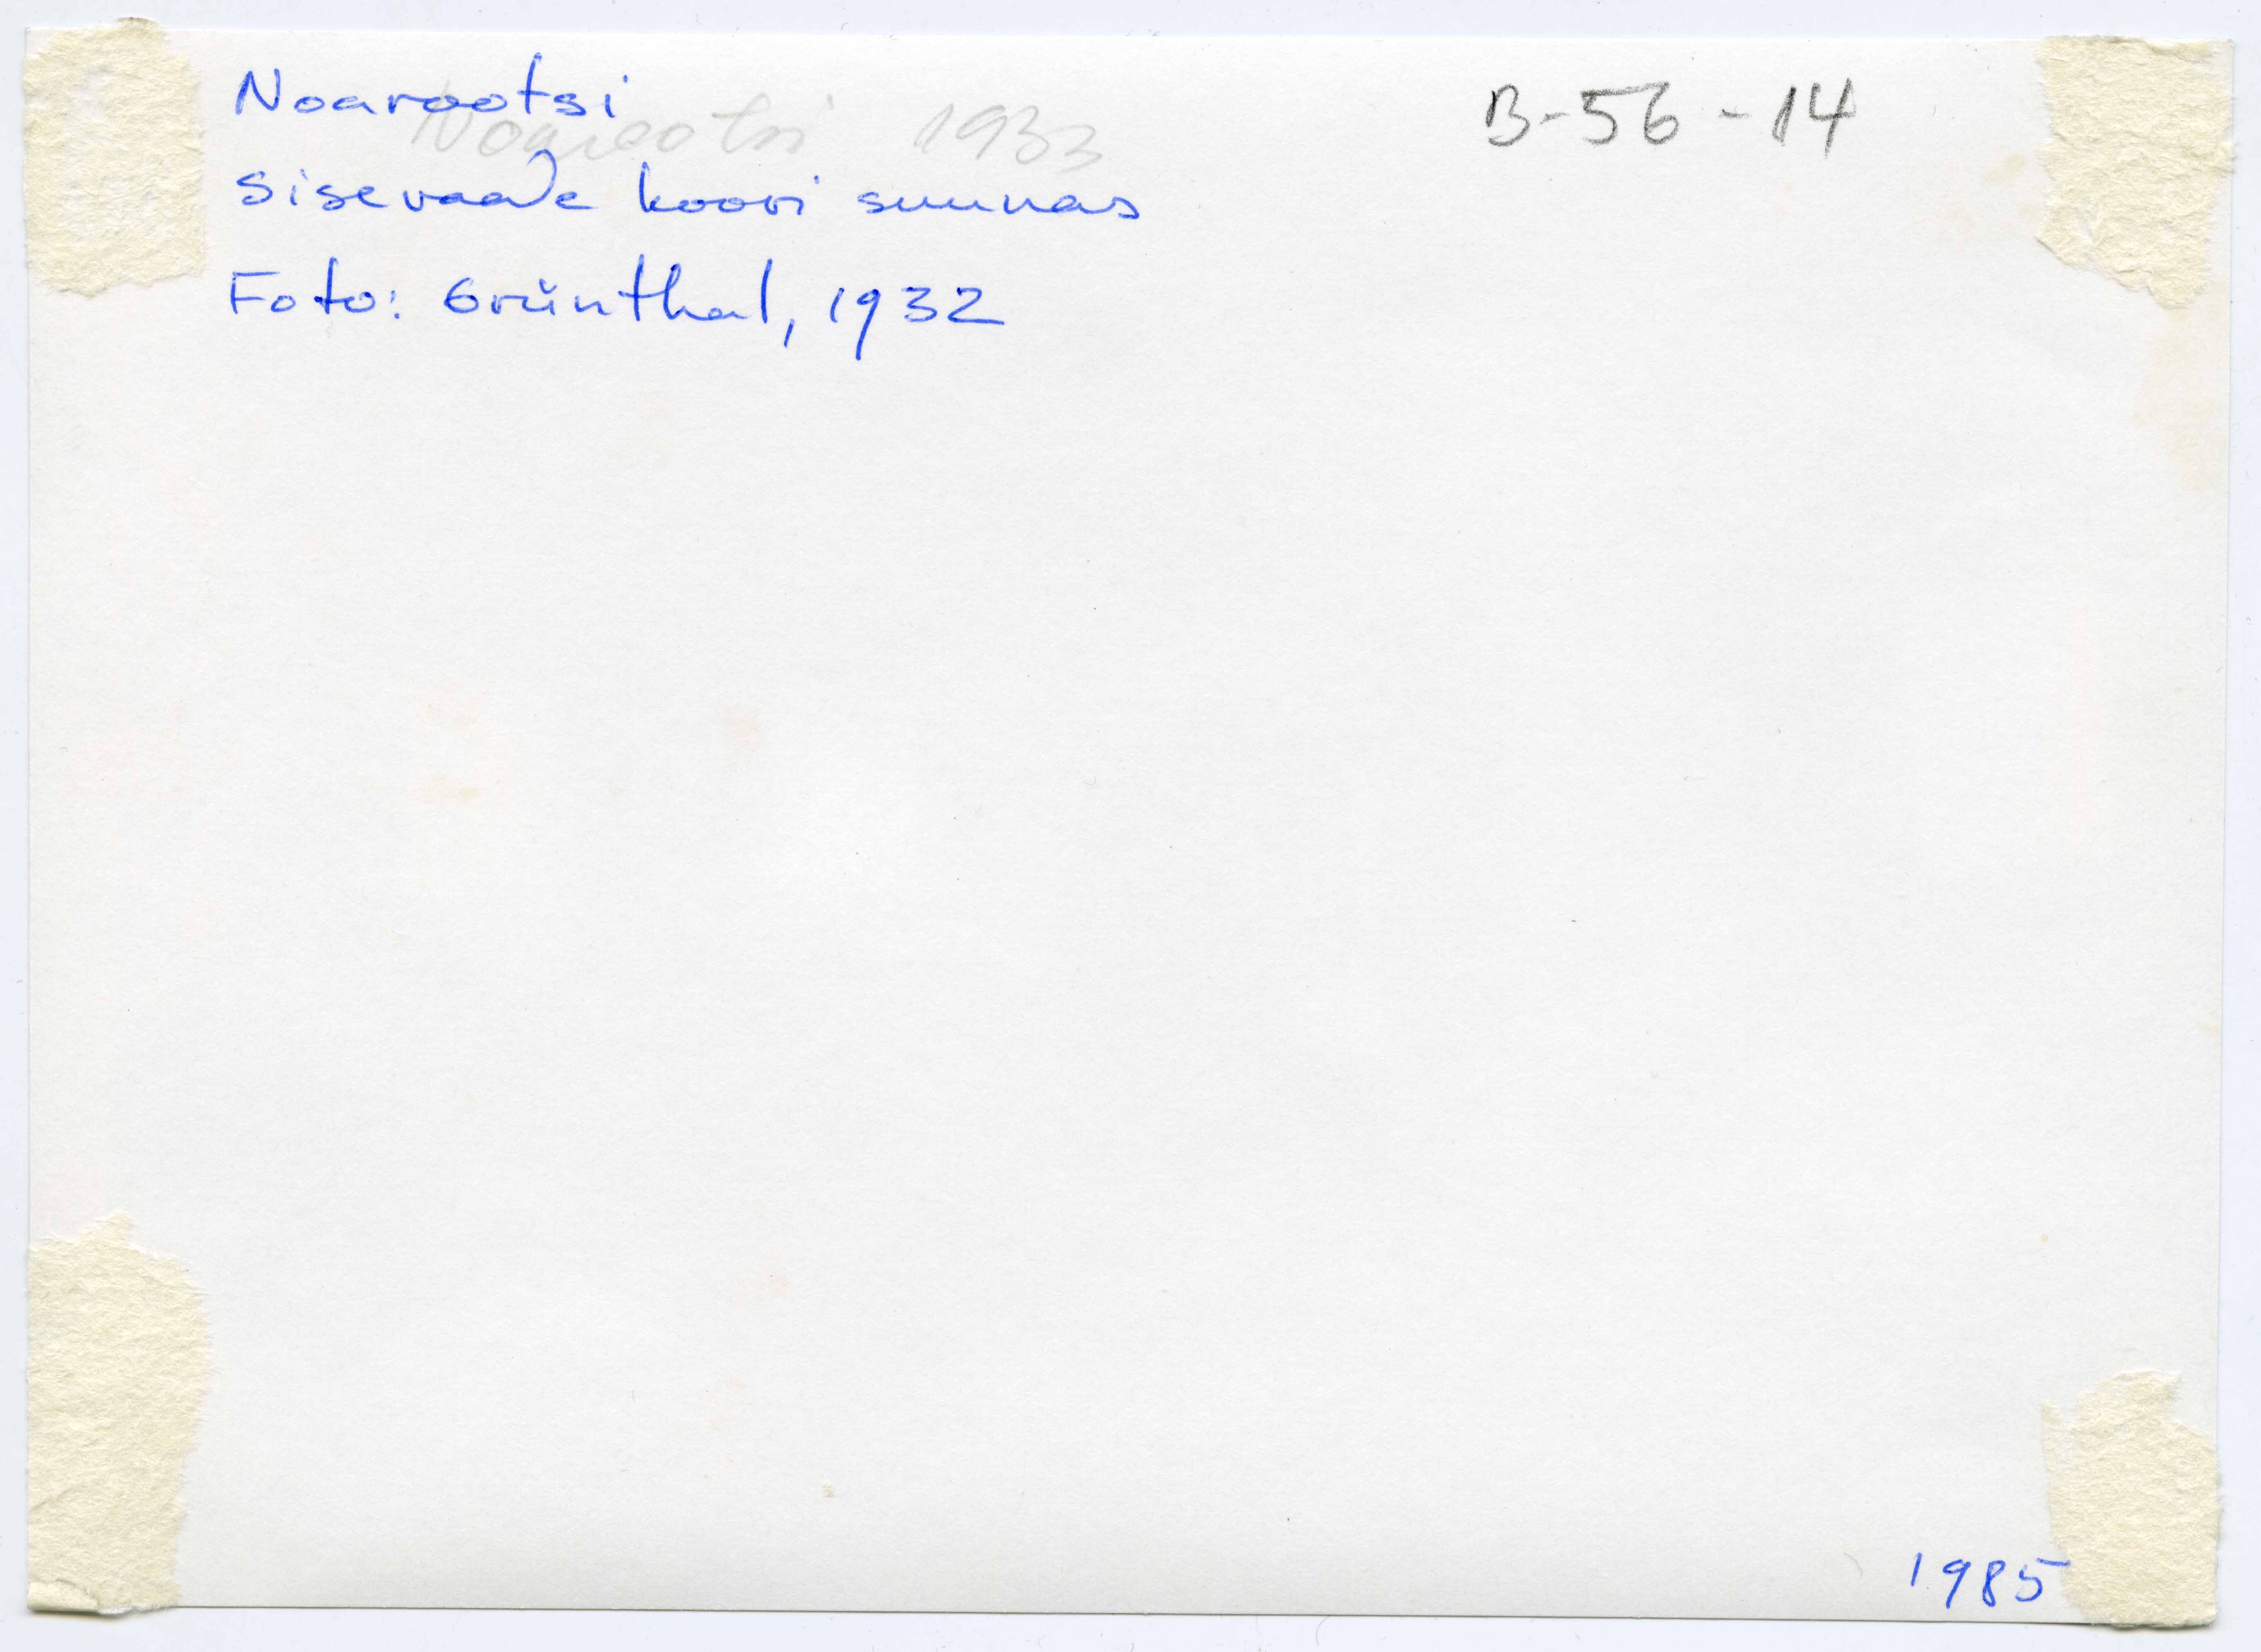 Noarootsi
Noarootsi 1933
B-56-14
Sisevaade koori suunas
Foto: Grünthal, 1932
1985